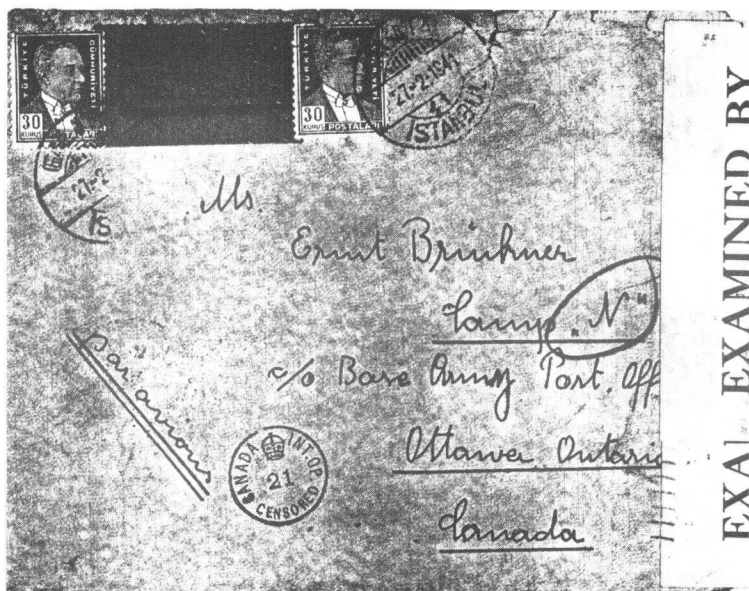 TÜRKİYE CUMHURİYETİ
30 KURUŞ POSTALARI
30 KURUŞ POSTALARI
27-2-1941
İSTANBUL
27-2
İS
Ms.
Ernst Brückner
Camp „N"
c/o Base Army Post. Off
Ottawa Ontario
Canada
Par avion
CANADA INT. OP.
21
CENSORED
EXA] EXAMINED BY